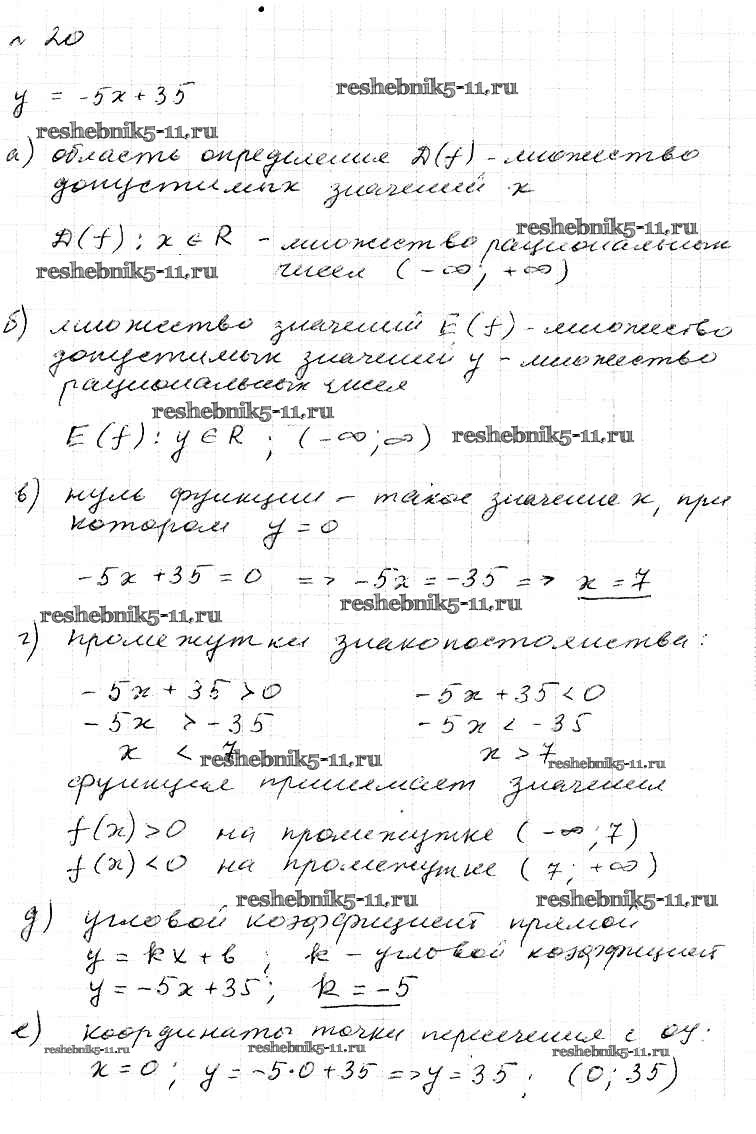 № 20
reshebnik5-11.ru
y = -5x + 35
reshebnik5-11.ru
а) область определения D(f) - множество
допустимых значений x
reshebnik5-11.ru
D(f) : x ∈ R - множество рациональных
reshebnik5-11.ru чисел (-∞; +∞)
б) множество значений E(f) - множество
допустимых значений y - множество
рациональных чисел
reshebnik5-11.ru
E(f) : y ∈ R ; (-∞; ∞) reshebnik5-11.ru
в) нуль функции - такое значение x, при
котором y = 0
-5x + 35 = 0 => -5x = -35 => x = 7
reshebnik5-11.ru reshebnik5-11.ru
г) промежутки знакопостоянства:
-5x + 35 > 0 -5x + 35 < 0
-5x > -35 -5x < -35
x < 7 x > 7
reshebnik5-11.ru reshebnik5-11.ru
функция принимает значения
f(x) > 0 на промежутке (-∞; 7)
f(x) < 0 на промежутке (7; +∞)
reshebnik5-11.ru reshebnik5-11.ru
д) угловой коэффициент прямой
y = kx + b ; k - угловой коэффициент
y = -5x + 35 ; k = -5
е) координаты точки пересечения с OY:
reshebnik5-11.ru reshebnik5-11.ru reshebnik5-11.ru
x = 0 ; y = -5·0 + 35 => y = 35 ; (0; 35)